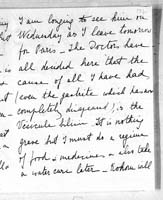 I am longing to see him on
Wednesday as I leave tomorrow
for Paris — The Doctors have
all decided here that the
cause of all I have had
(even the gastritis which has now
completely disappeared) is the
Vesicule biliaire. It is nothing
grave but I must do a regime
of food & medicines — & also take
a water cure later —